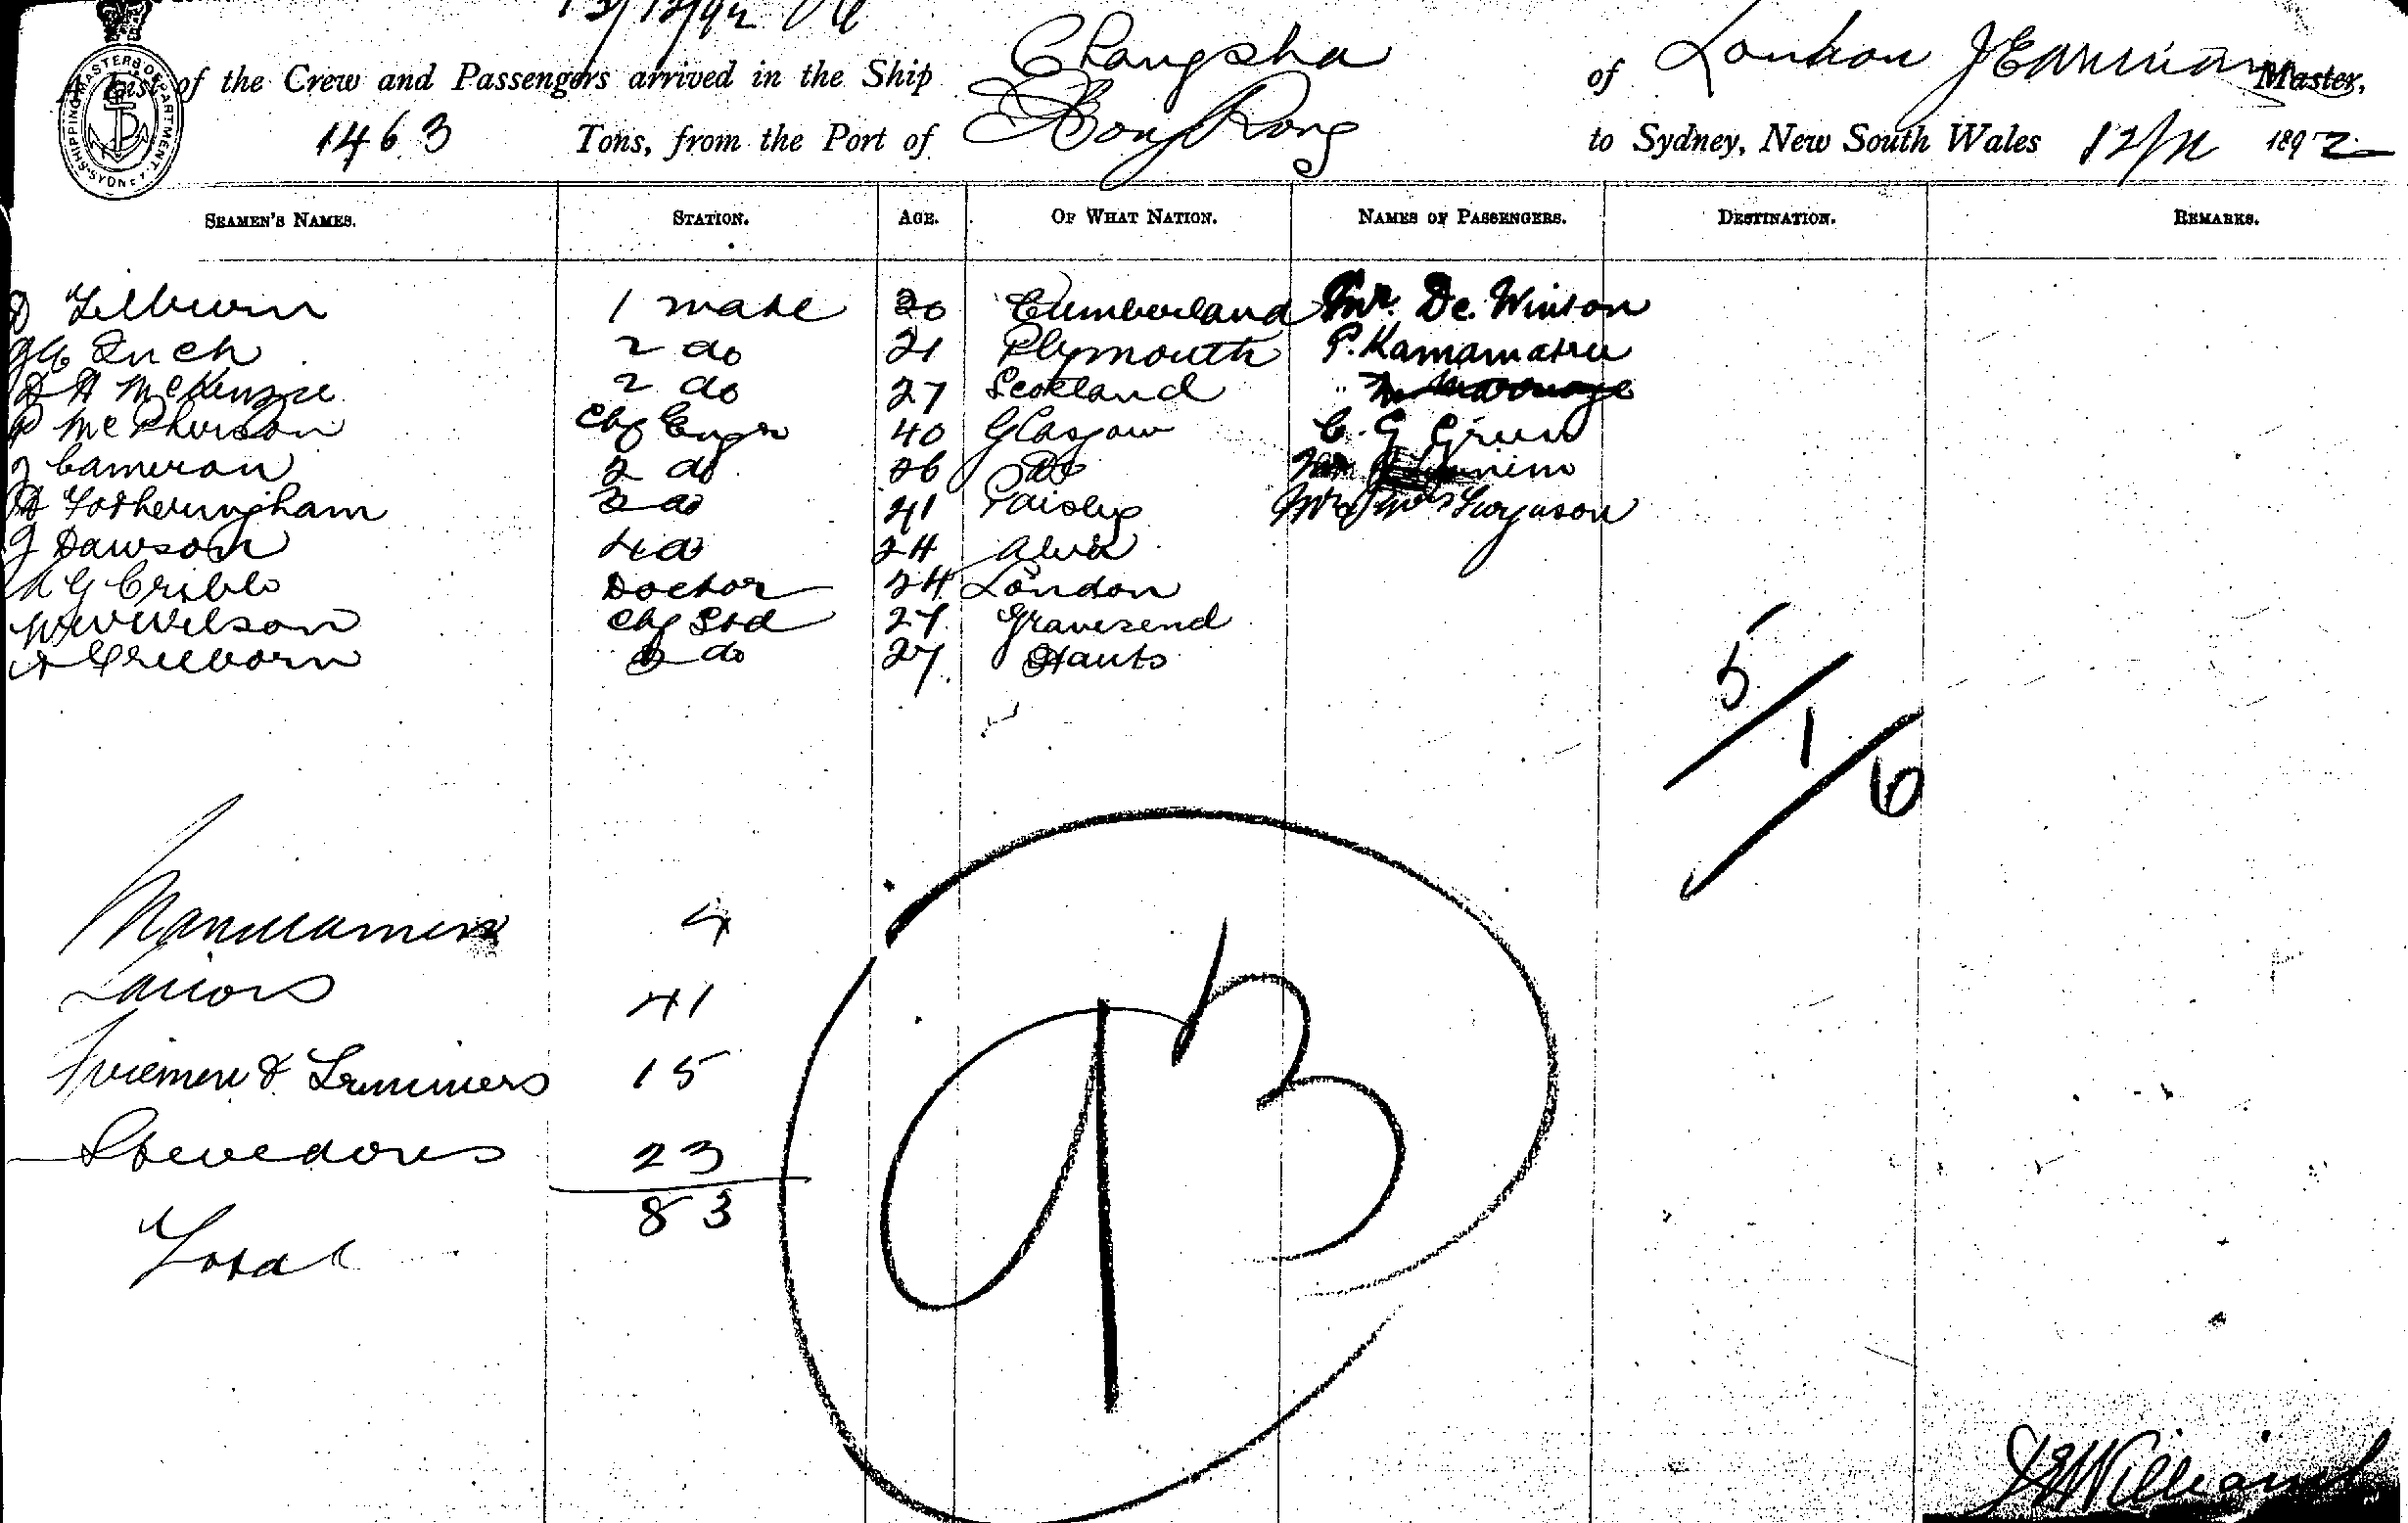 13/12/92
A List of the Crew and Passengers arrived in the Ship Changsha of London Master,
SHIPPING MASTERS DEPARTMENT SYDNEY
1463 Tons, from the Port of Hong Kong to Sydney, New South Wales 12/12 1892
SEAMEN'S NAMES. STATION. AGE. OF WHAT NATION. NAMES OF PASSENGERS. DESTINATION. REMARKS.
1 mate Cumberland Mr. De. Winton
2 do 21 Plymouth P. Kamamatsu
D A McKenzie 2 do 27 Scotland
P McPherson Chf Engr 40 Glasgow C. G Green
J Cameron 2 do 26 Do
A Fotheringham 3 do 21 Paisley Mr Ferguson
J Dawson 4 do 24 Alva
A G Cribb Doctor 24 London
W W Wilson Chf Std 27 Gravesend
A Freeborn 2 do 27 Hants
5/1/6
Manillamen 4
Sailors 41
Firemen & Trimmers 15
Stevedores 23
83
Total
93
Williams